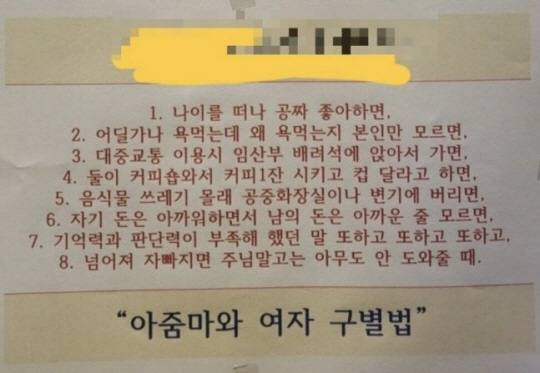 1. 나이를 떠나 공짜 좋아하면,
2. 어딜가나 욕먹는데 왜 욕먹는지 본인만 모르면,
3. 대중교통 이용시 임산부 배려석에 앉아서 가면,
4. 둘이 커피숍와서 커피1잔 시키고 컵 달라고 하면,
5. 음식물 쓰레기 몰래 공중화장실이나 변기에 버리면,
6. 자기 돈은 아까워하면서 남의 돈은 아까운 줄 모르면,
7. 기억력과 판단력이 부족해 했던 말 또하고 또하고 또하고,
8. 넘어져 자빠지면 주님말고는 아무도 안 도와줄 때.
“아줌마와 여자 구별법”